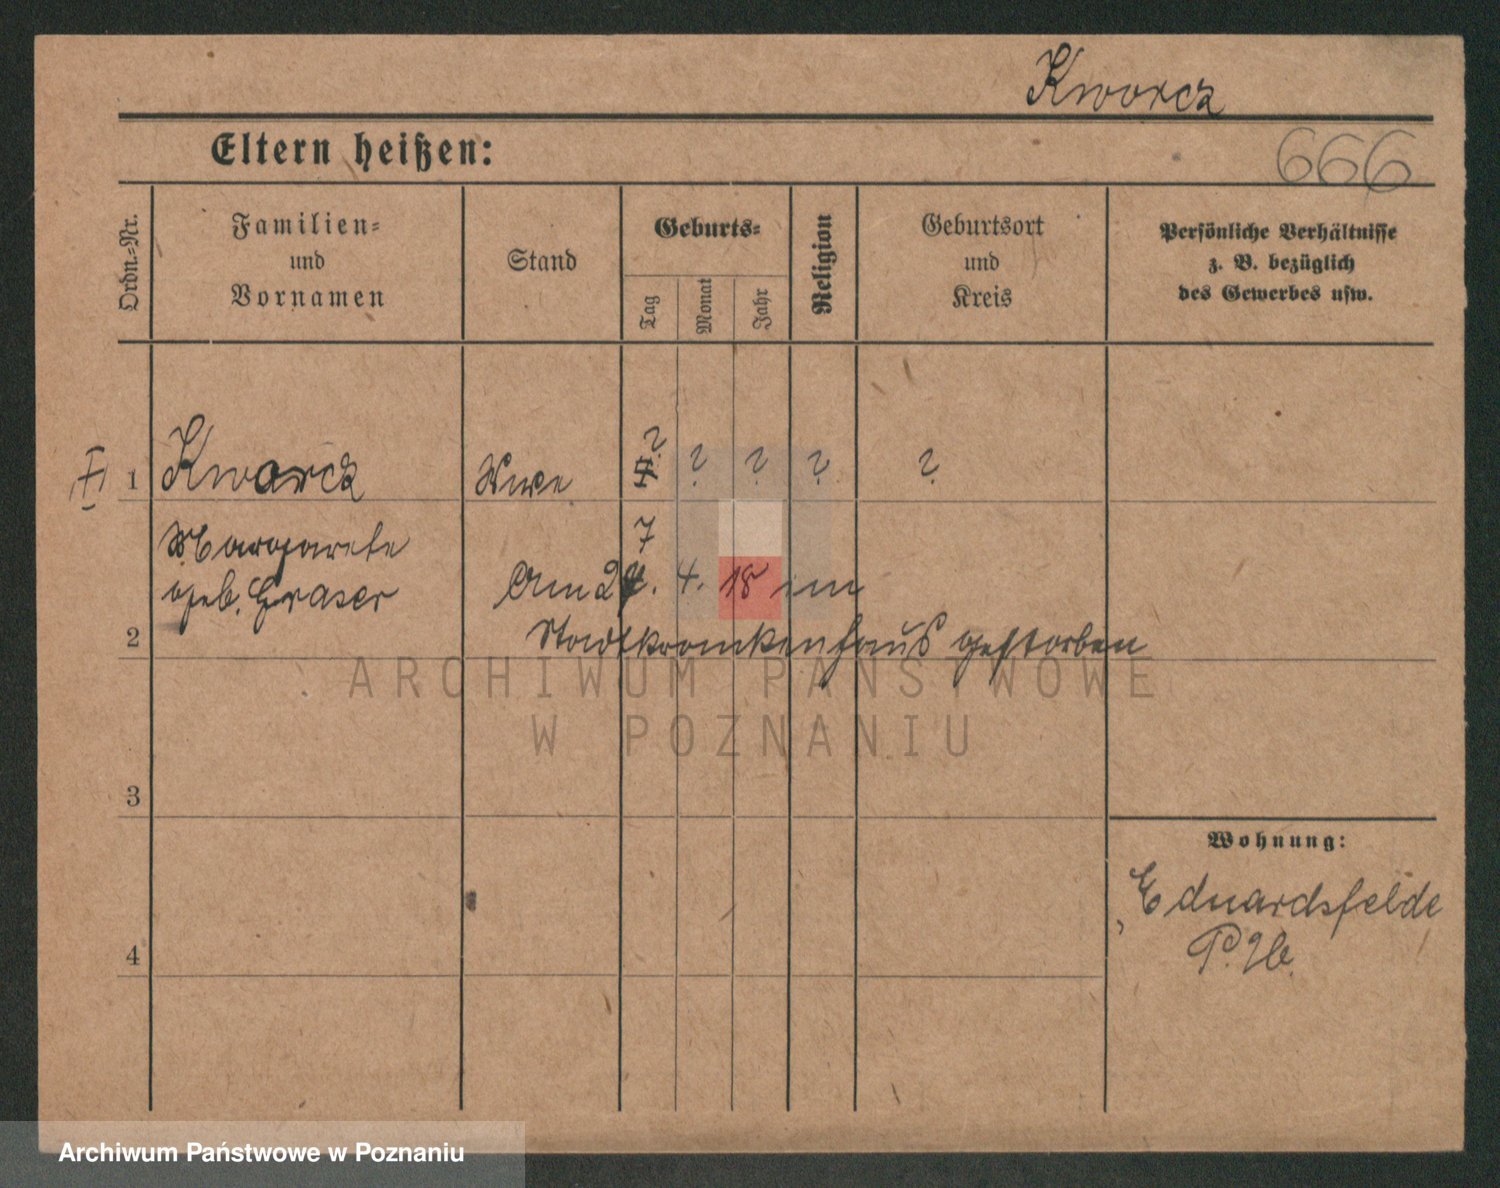 Kworcz
Eltern heißen:
666
Ordn.-Nr.
Familien-
und
Vornamen
Stand
Geburts-
Tag
Monat
Jahr
Religion
Geburtsort
und
Kreis
Persönliche Verhältnisse
z. B. bezüglich
des Gewerbes usw.
1 Kwarcz Wwe ? ? ? ? ?
Margarete
7
geb. Graser Am 2 . 4. 18 im
2 Stadtkrankenhaus gestorben
ARCHIWUM PAŃSTWOWE
W POZNANIU
3
Wohnung:
Eduardsfelde
4
Archiwum Państwowe w Poznaniu